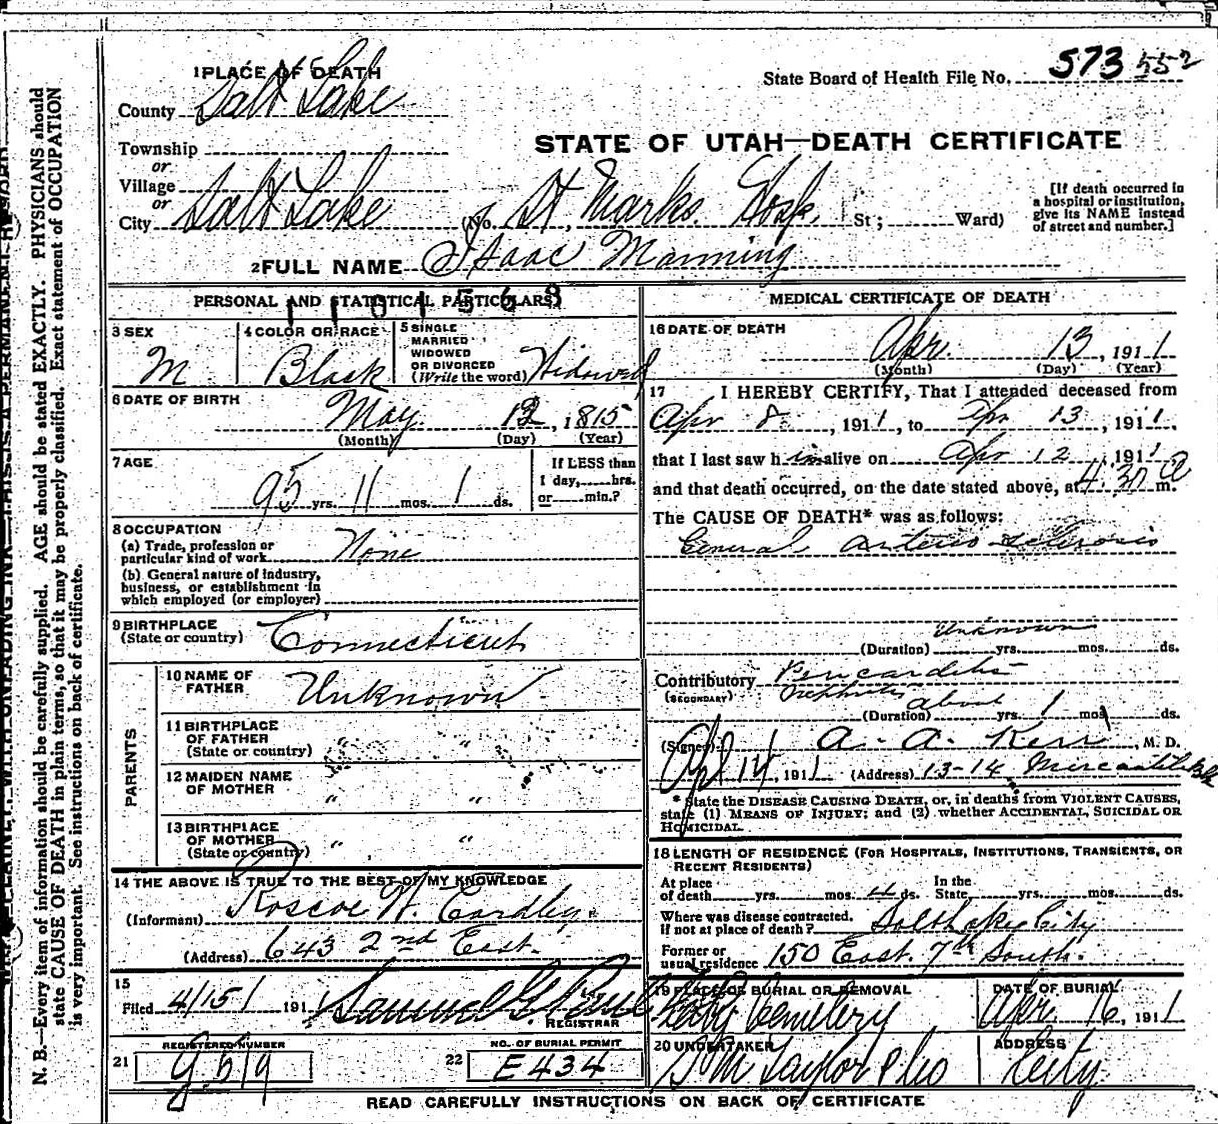 1 PLACE OF DEATH
County Salt Lake
State Board of Health File No. 573 552
STATE OF UTAH—DEATH CERTIFICATE
Township
or
Village
or
City Salt Lake (No. St Marks Hosp. St; Ward)
[If death occurred in
a hospital or institution,
give its NAME instead
of street and number.]
2 FULL NAME Isaac Manning
PERSONAL AND STATISTICAL PARTICULARS
3 SEX M
4 COLOR OR RACE Black
5 SINGLE
MARRIED
WIDOWED
OR DIVORCED
(Write the word) Widowed
6 DATE OF BIRTH May 12, 1815
(Month) (Day) (Year)
7 AGE 95 yrs. 11 mos. 1 ds.
If LESS than
1 day, hrs.
or min.?
8 OCCUPATION
(a) Trade, profession or
particular kind of work None
(b) General nature of industry,
business, or establishment in
which employed (or employer)
9 BIRTHPLACE
(State or country) Connecticut
PARENTS
10 NAME OF
FATHER Unknown
11 BIRTHPLACE
OF FATHER
(State or country) " "
12 MAIDEN NAME
OF MOTHER " "
13 BIRTHPLACE
OF MOTHER
(State or country) " "
14 THE ABOVE IS TRUE TO THE BEST OF MY KNOWLEDGE
(Informant) Roscoe W. Eardley.
(Address) 643 2nd East.
15
Filed 4/15/1 191 Samuel G. Paul
REGISTRAR
21 REGISTERED NUMBER
G 519
22 NO. OF BURIAL PERMIT
E434
MEDICAL CERTIFICATE OF DEATH
16 DATE OF DEATH
Apr. 13, 1911
(Month) (Day) (Year)
17 I HEREBY CERTIFY, That I attended deceased from
Apr 8, 1911, to Apr 13, 1911,
that I last saw him alive on Apr 12 1911
and that death occurred, on the date stated above, at 4:30 a m.
The CAUSE OF DEATH* was as follows:
General arterio-sclerosis
Unknown
(Duration) yrs. mos. ds.
Contributory Pericarditis
(SECONDARY) Nephritis about
(Duration) yrs. 1 mos. ds.
(Signed) A. A. Kerr, M. D.
Apl 14, 1911 (Address) 13-14 Mercantile Blk
* State the DISEASE CAUSING DEATH, or, in deaths from VIOLENT CAUSES,
state (1) MEANS OF INJURY; and (2) whether ACCIDENTAL, SUICIDAL OR
HOMICIDAL.
18 LENGTH OF RESIDENCE (FOR HOSPITALS, INSTITUTIONS, TRANSIENTS, OR
RECENT RESIDENTS)
At place
of death yrs. mos. 4 ds. In the
State yrs. mos. ds.
Where was disease contracted.
If not at place of death? Salt Lake City
Former or
usual residence 150 East. 7th South.
19 PLACE OF BURIAL OR REMOVAL
City Cemetery
DATE OF BURIAL
Apr 16, 1911
20 UNDERTAKER
S M Taylor & Co
ADDRESS
City
READ CAREFULLY INSTRUCTIONS ON BACK OF CERTIFICATE
N. B.—Every item of information should be carefully supplied. AGE should be stated EXACTLY. PHYSICIANS should
state CAUSE OF DEATH in plain terms, so that it may be properly classified. Exact statement of OCCUPATION
is very important. See instructions on back of certificate.